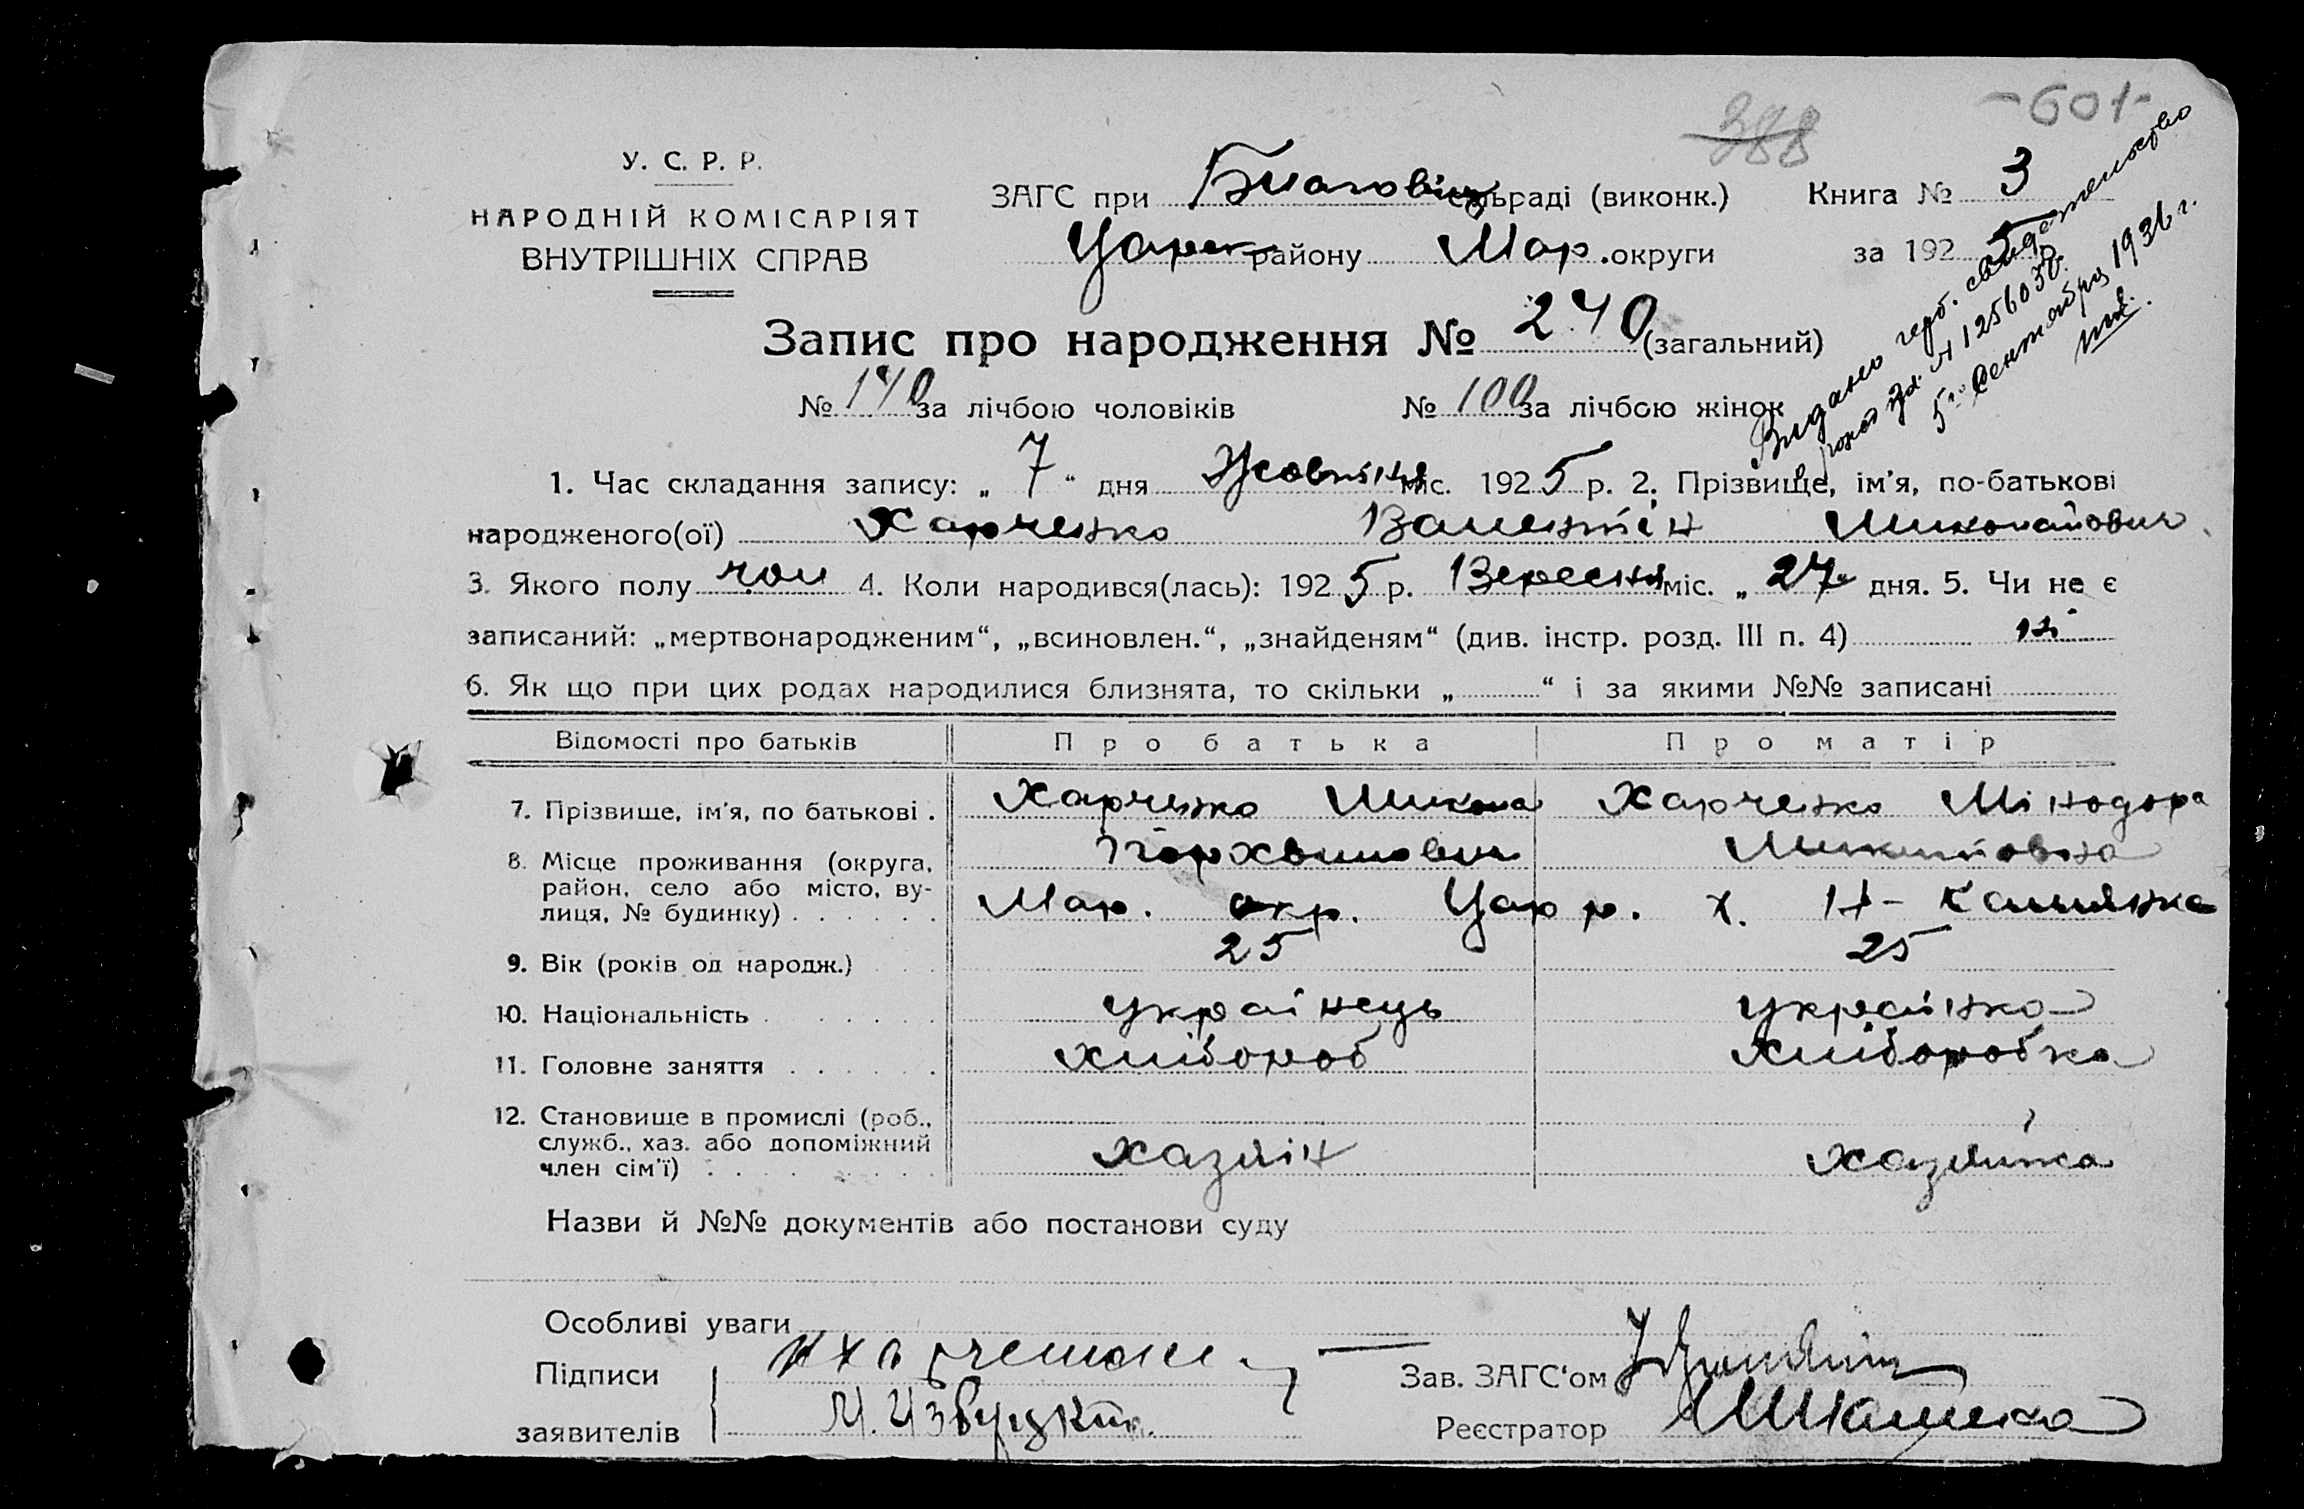 388
-601-
У. С. Р. Р.
НАРОДНІЙ КОМІСАРІЯТ
ВНУТРІШНІХ СПРАВ
ЗАГС при Благовіщ сільраді (виконк.) Книга № 3
Царек району Мар. округи за 1925
Запис про народження № 240 (загальний)
№ 140 за лічбою чоловіків № 100 за лічбою жінок
Видано герб. свидетельство
рожд за № 1256038.
5го Сентября 1936 г.
1. Час складання запису: „ 7 “ дня Жовтня міс. 1925 р. 2. Прізвище, ім'я, по-батькові
народженого(ої) Харченко Валентін Миколайович
3. Якого полу чол 4. Коли народився(лась): 1925 р. Вересня міс. „ 27 “ дня. 5. Чи не є
записаний: „мертвонародженим“, „всиновлен.“, „знайденям“ (див. інстр. розд. III п. 4) ні
6. Як що при цих родах народилися близнята, то скільки „ “ і за якими №№ записані
Відомості про батьків Про батька Про матір
7. Прізвище, ім'я, по батькові . Харченко Микола Харченко Мінодора
Пархвилович Микитовна
8. Місце проживання (округа,
район, село або місто, ву-
лиця, № будинку) . . . . . . Мар. окр. Цар р. х. Н-Камянка
9. Вік (років од народж.) 25 25
10. Національність українець українка
11. Головне заняття хлібороб хліборобка
12. Становище в промислі (роб.,
служб., хаз. або допоміжний
член сім'ї) хазяїн хазяйка
Назви й №№ документів або постанови суду
Особливі уваги
Підписи Зав. ЗАГС'ом
заявителів Реєстратор